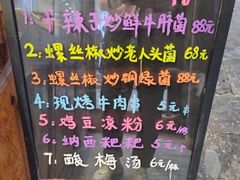 1:干辣子炒鲜牛肝菌 88元
2:螺丝椒炒老人头菌 68元
3:螺丝椒炒铜绿菌 88元
4:现烤牛肉串 5元/串
5:鸡豆凉粉 6元/份
6:纳西粑粑 5元/个
7:酸梅汤 6元/杯